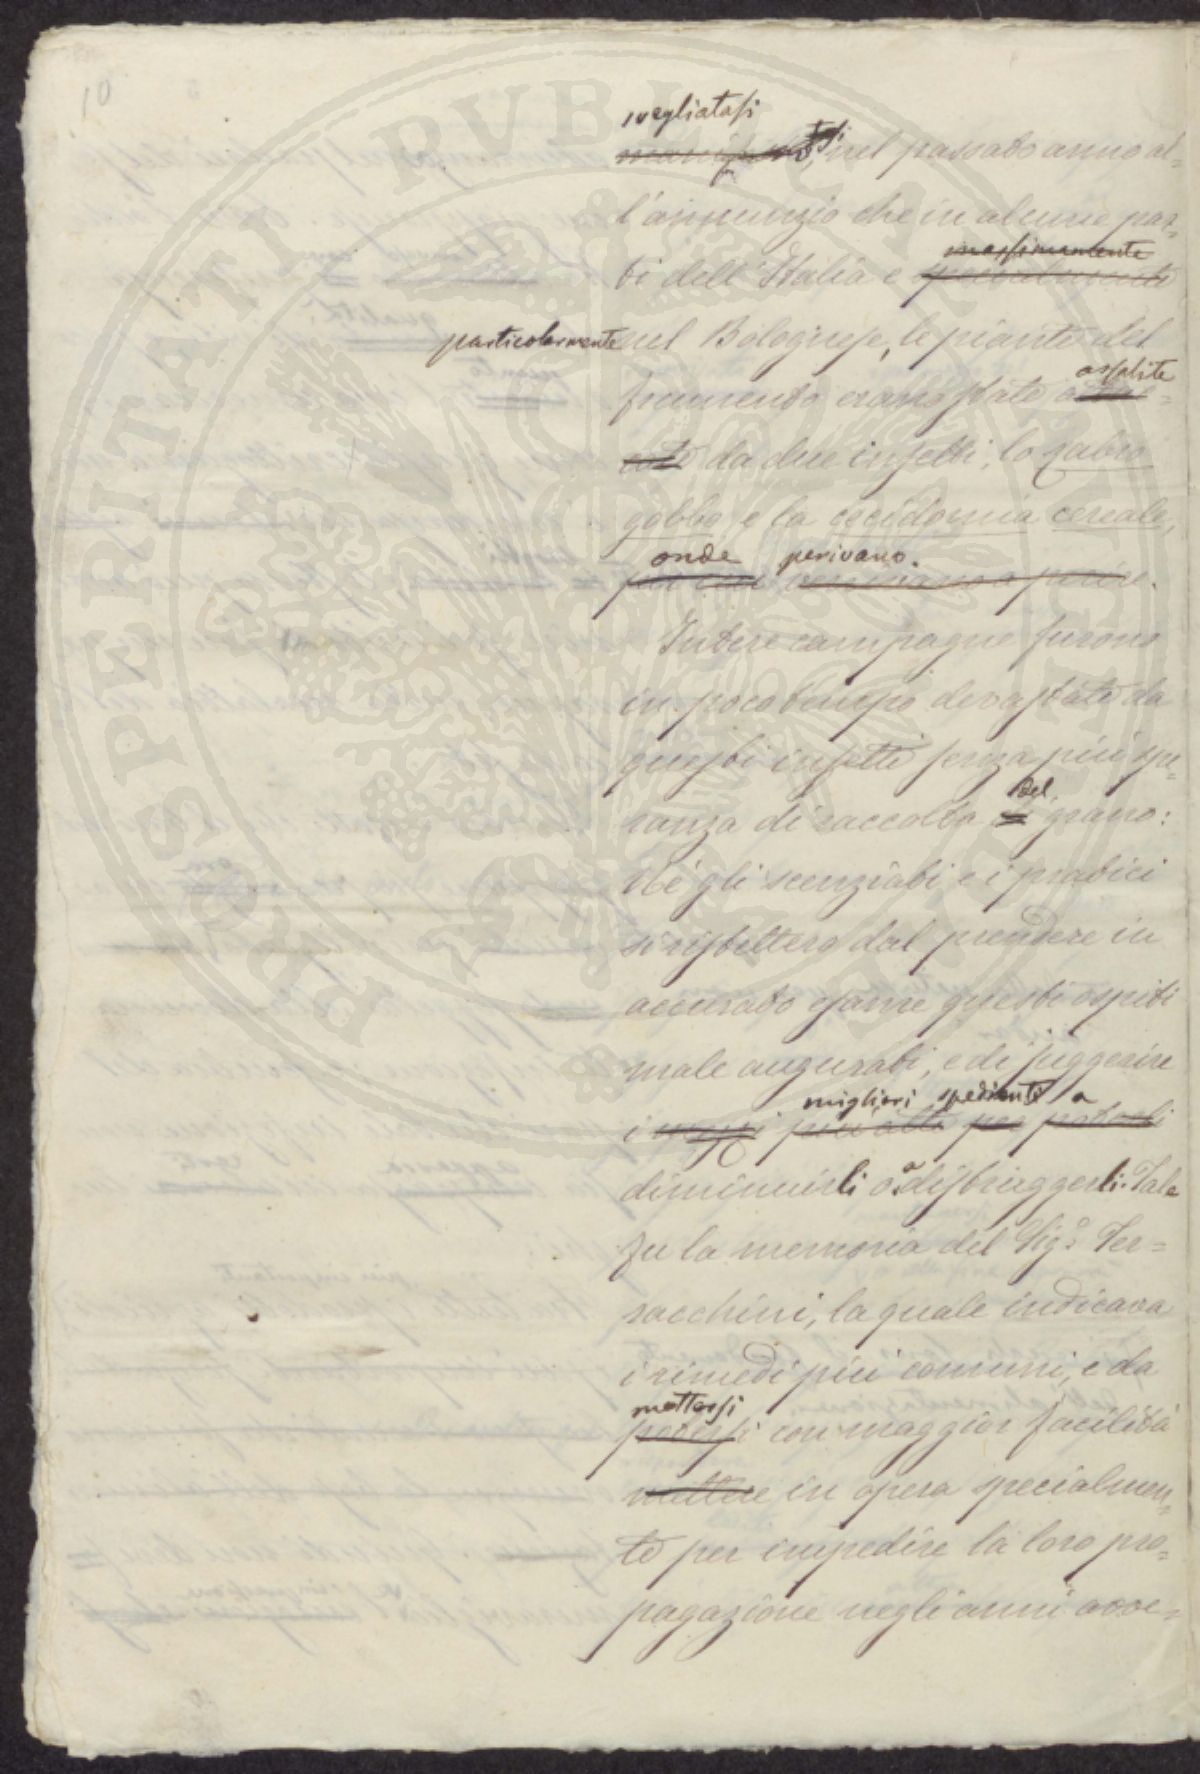 10
svegliatasi
nel passato anno al=
l'annunzio che in alcune par=
massimamente
ti dell'Italia e specialmente
particolarmente nel Bolognese, le piante del
assalite
frumento erano state attac=
cate da due insetti, lo zabro
gobbo, e la cecidomia cereale,
onde perivano.
per cui venivano a perire.
Intere campagne furono
in poco tempo devastate da
questi insetti senza più spe=
del
ranza di raccolta di grano:
nè gli scenziati, e i pratici
si ristettero dal prendere in
accurato esame questi ospiti
male augurati, e di suggerire
migliori spedienti a
i mezzi più atti per poterli
diminuirli o a distruggerli. Tale
fu la memoria del Sigr. Ter=
sacchini, la quale indicava
i rimedi più comuni, e da
mettersi
potersi con maggior facilità
mettere in opera specialmen=
te per impedire la loro pro=
pagazione negli anni avve=
PROSPERITATI PUBLICAE